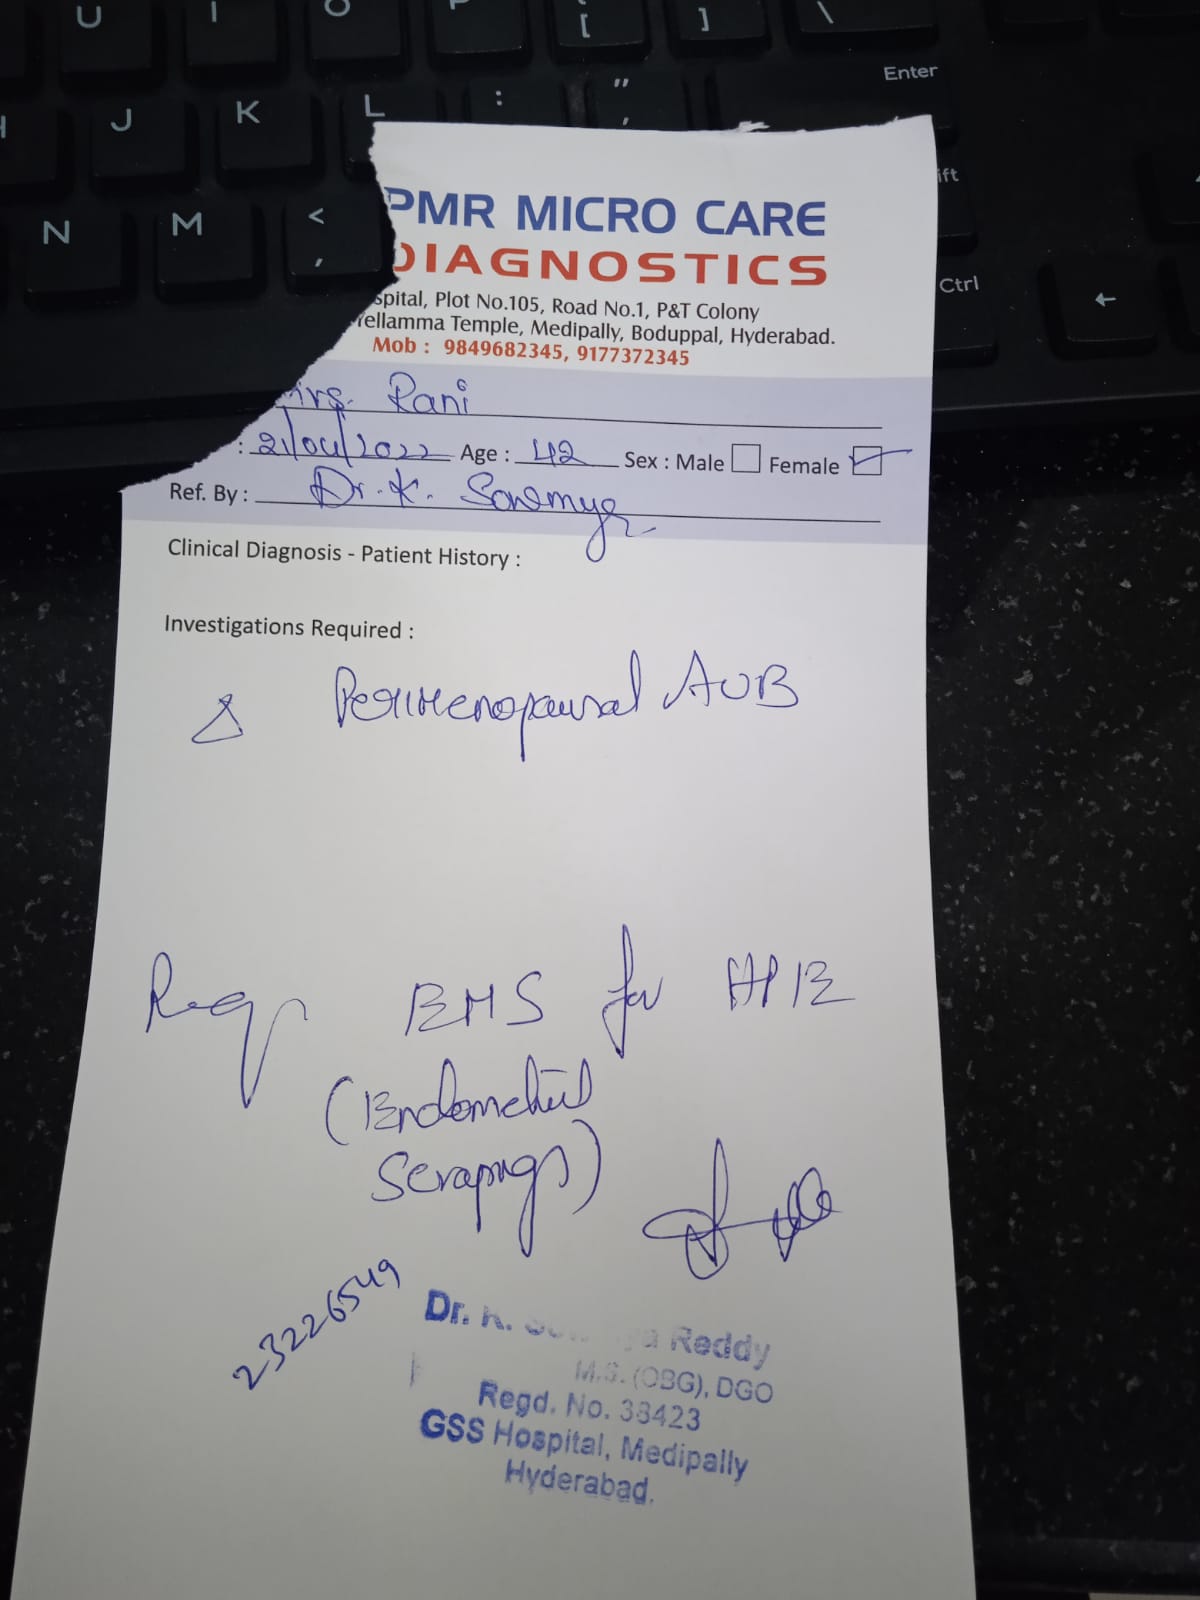 U I O P [ ] \
J K L : " , Enter
N M < , ift
Ctrl
←
PMR MICRO CARE
DIAGNOSTICS
spital, Plot No.105, Road No.1, P&T Colony
Yellamma Temple, Medipally, Boduppal, Hyderabad.
Mob : 9849682345, 9177372345
Mrs. Rani
: 21/04/2022 Age : 42 Sex : Male Female
Ref. By : Dr. K. Sowmya
Clinical Diagnosis - Patient History :
Investigations Required :
Δ Perimenopausal AUB
Req EMS for HPE
(Endometrial
Scrapings)
23226549
Dr. K. Reddy
M.S. (OBG), DGO
Regd. No. 38423
GSS Hospital, Medipally
Hyderabad.